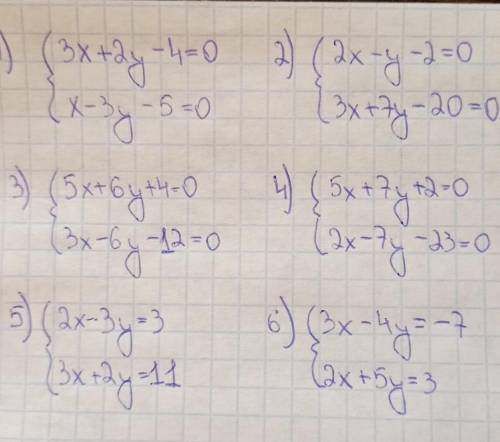 1) { 3x+2y-4=0
x-3y-5=0
2) { 2x-y-2=0
3x+7y-20=0
3) { 5x+6y+4=0
3x-6y-12=0
4) { 5x+7y+2=0
2x-7y-23=0
5) { 2x-3y=3
3x+2y=11
6) { 3x-4y=-7
2x+5y=3